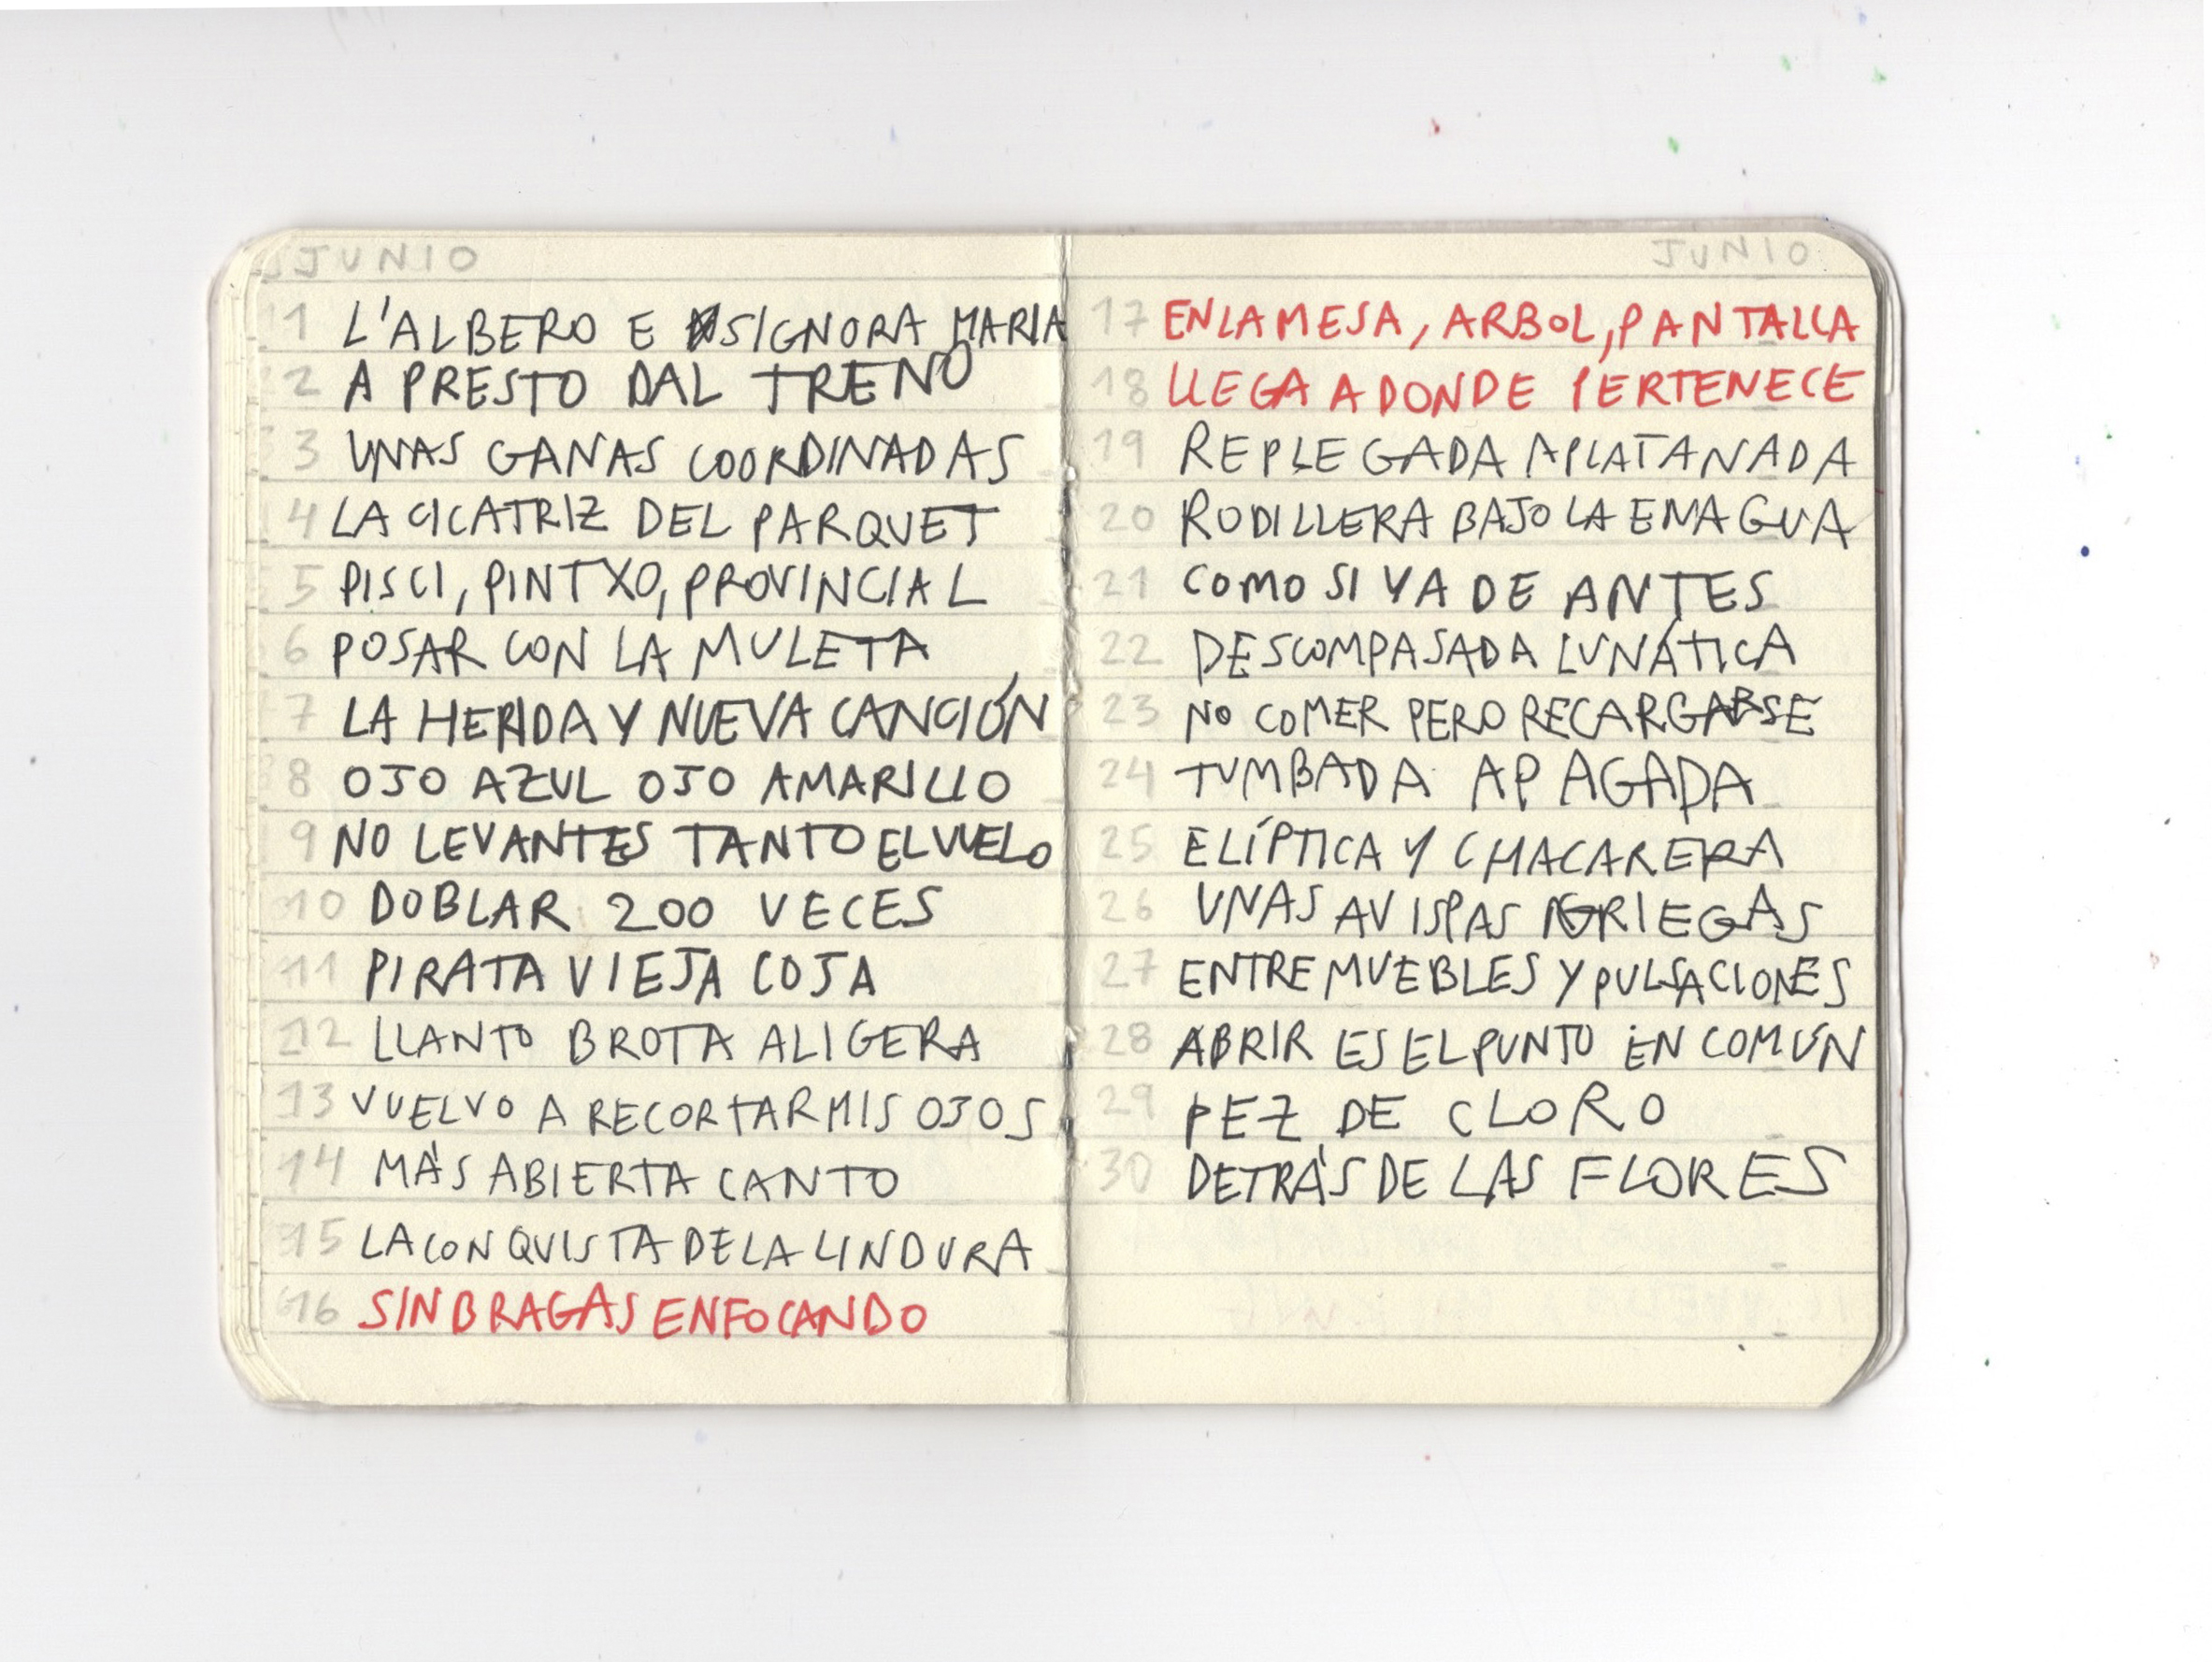 JUNIO
1 L'ALBERO E SIGNORA MARIA
2 A PRESTO DAL TRENO
3 UNAS GANAS COORDINADAS
4 LA CICATRIZ DEL PARQUET
5 PISCI, PINTXO, PROVINCIAL
6 POSAR CON LA MULETA
7 LA HERIDA Y NUEVA CANCIÓN
8 OJO AZUL OJO AMARILLO
9 NO LEVANTES TANTO EL VUELO
10 DOBLAR 200 VECES
11 PIRATA VIEJA COJA
12 LLANTO BROTA ALIGERA
13 VUELVO A RECORTAR MIS OJOS
14 MÁS ABIERTA CANTO
15 LA CONQUISTA DE LA LINDURA
16 SIN BRAGAS ENFOCANDO
JUNIO
17 EN LA MESA, ARBOL, PANTALLA
18 LLEGA A DONDE PERTENECE
19 REPLEGADA APLATANADA
20 RODILLERA BAJO LA ENAGUA
21 COMO SI YA DE ANTES
22 DESCOMPASADA LUNÁTICA
23 NO COMER PERO RECARGARSE
24 TUMBADA APAGADA
25 ELÍPTICA Y CHACARERA
26 UNAS AVISPAS GRIEGAS
27 ENTRE MUEBLES Y PULSACIONES
28 ABRIR ES EL PUNTO EN COMÚN
29 PEZ DE CLORO
30 DETRÁS DE LAS FLORES